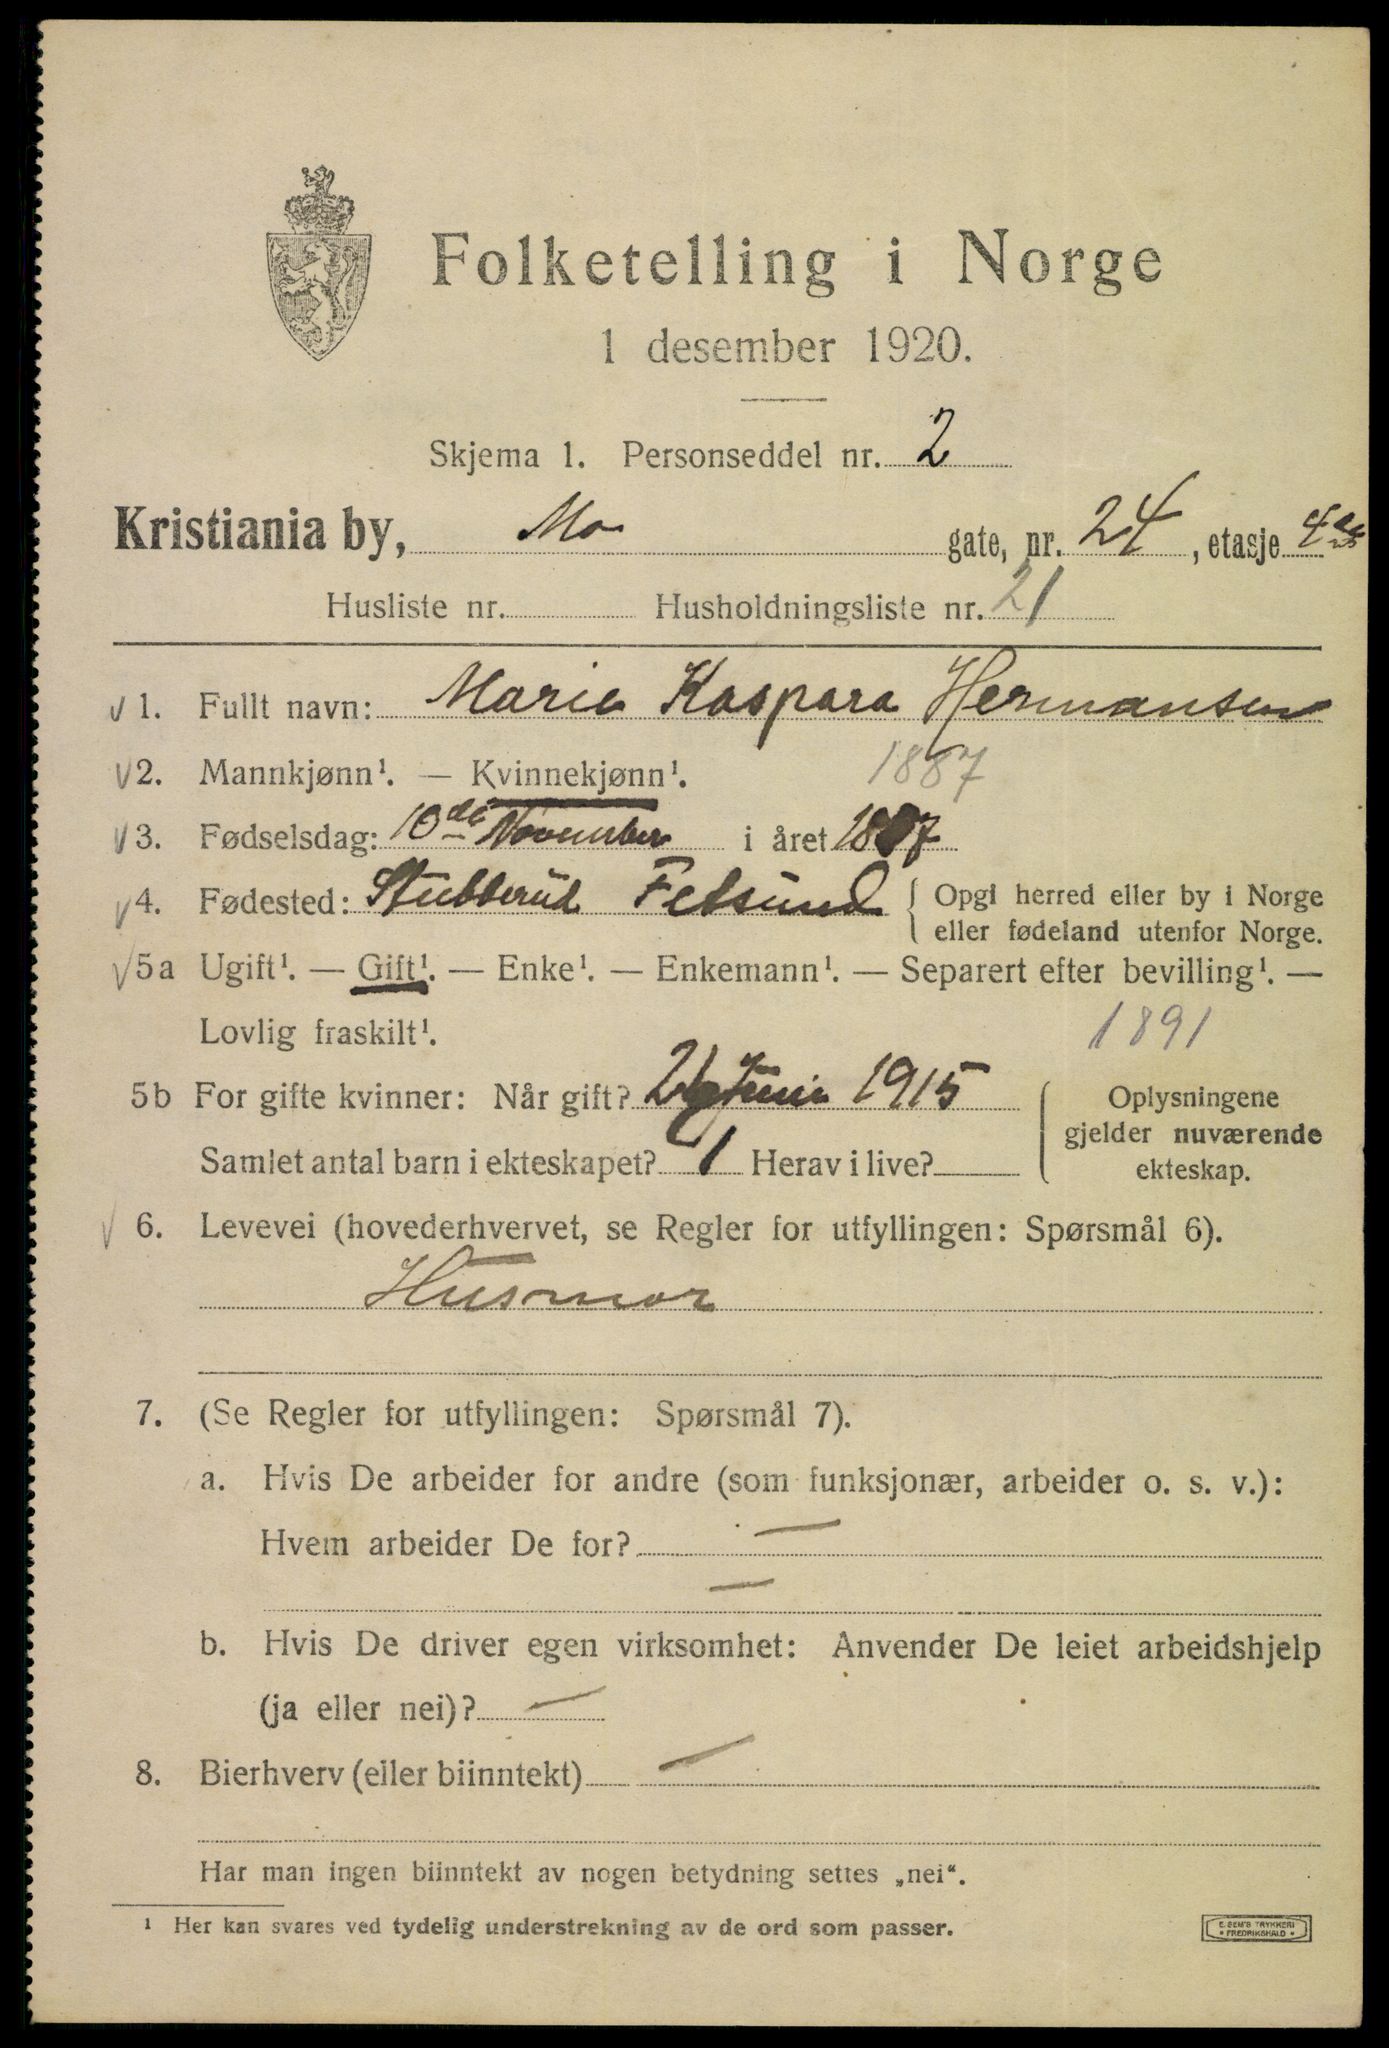 Folketelling i Norge
1 desember 1920.
Skjema 1. Personseddel nr. 2
Kristiania by, Mo gate, nr. 24, etasje 4de
Husliste nr. Husholdningsliste nr. 21
1. Fullt navn: Marie Kaspara Hermansen
2. Mannkjønn¹. — Kvinnekjønn¹. 1887
3. Fødselsdag: 10de November i året 1887
4. Fødested: Stubberud Fetsund { Opgi herred eller by i Norge
eller fødeland utenfor Norge.
5a Ugift¹. — Gift¹. — Enke¹. — Enkemann¹. — Separert efter bevilling¹. —
Lovlig fraskilt¹. 1891
5b For gifte kvinner: Når gift? Juni 1915
Samlet antal barn i ekteskapet? 1 Herav i live?
Oplysningene
gjelder nuværende
ekteskap.
6. Levevei (hovederhvervet, se Regler for utfyllingen: Spørsmål 6).
Husmor
7. (Se Regler for utfyllingen: Spørsmål 7).
a. Hvis De arbeider for andre (som funksjonær, arbeider o. s. v.):
Hvem arbeider De for? —
—
b. Hvis De driver egen virksomhet: Anvender De leiet arbeidshjelp
(ja eller nei)? —
8. Bierhverv (eller biinntekt) —
Har man ingen biinntekt av nogen betydning settes „nei“.
¹ Her kan svares ved tydelig understrekning av de ord som passer.
E. SEM'S TRYKKERI
FREDRIKSHALD